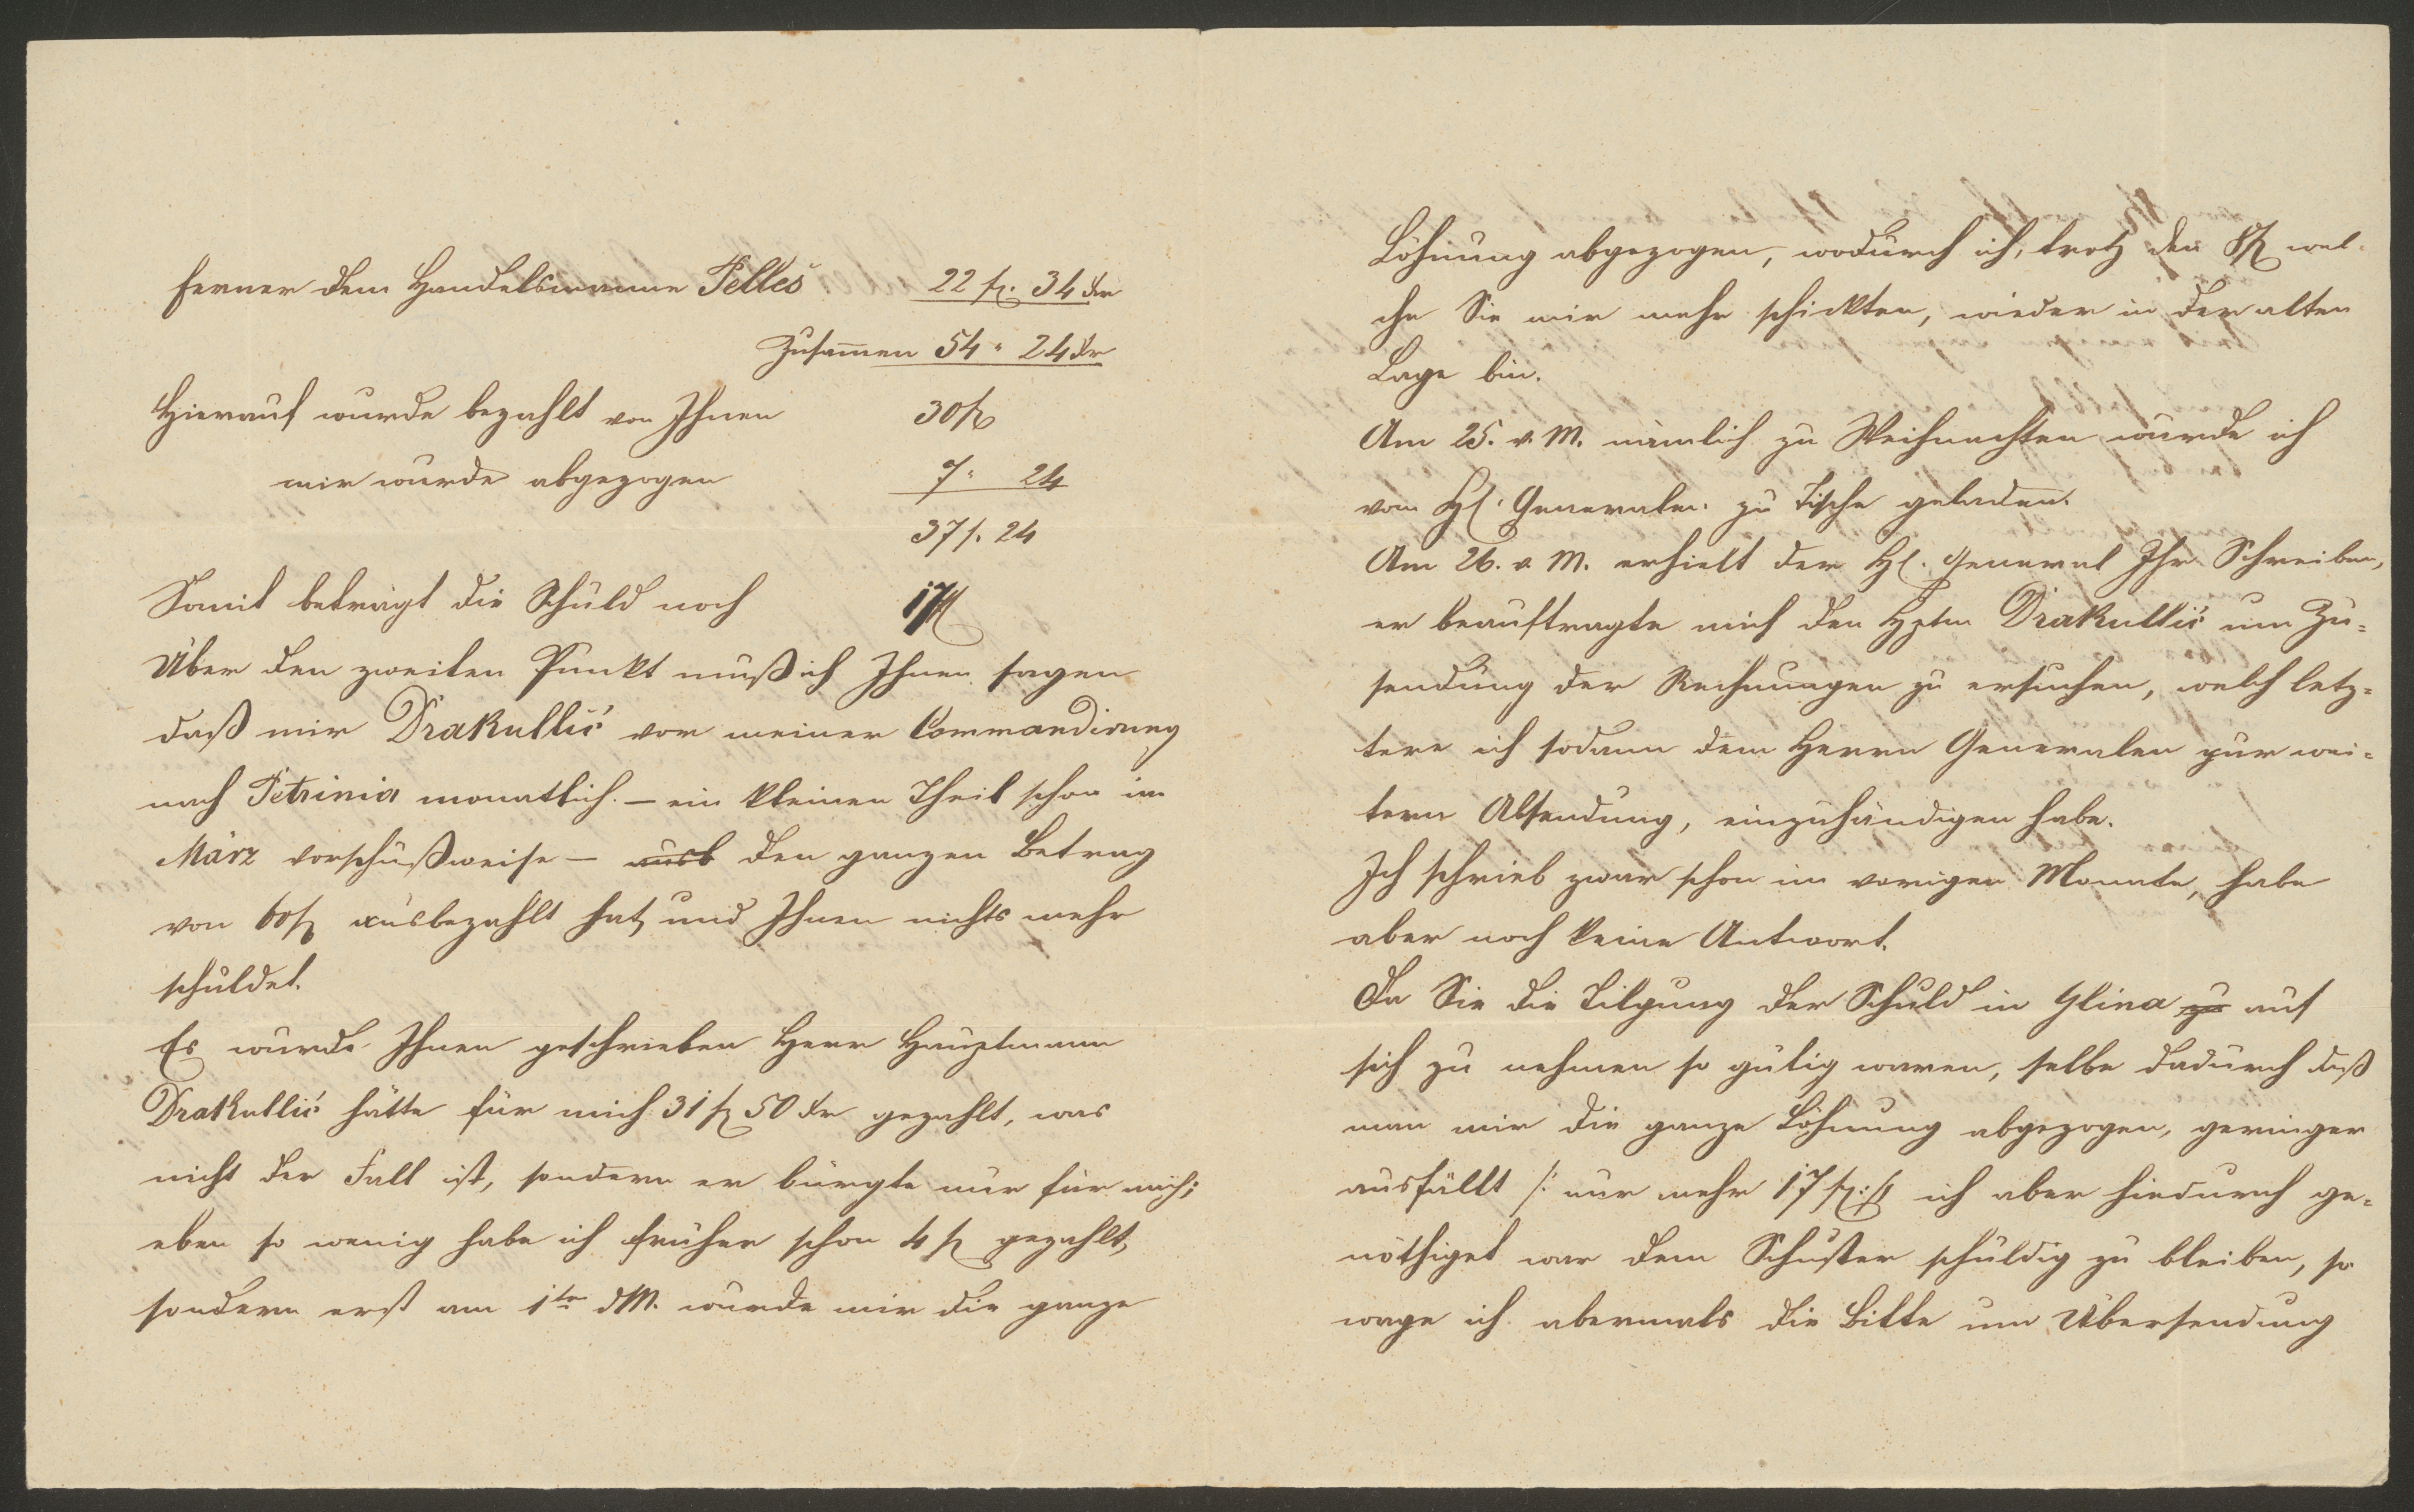 ferner dem Handelsmanne Pelleš 22 fl. 34 kr
Zusam̅en 54 " 24 kr
Hierauf wurde bezahlt von Ihnen 30 fl
mir wurde abgezogen 7 " 24
37 f. 24
Somit beträgt die Schuld noch 17 fl
Über den zweiten Punkt muß ich Ihnen sagen
daß mir Drakullić vor meiner Commandirung
nach Petrinia monatlich – ein kleinen Theil schon im
März vorschußweise – ausb den ganzen Betrag
von 60 fl ausbezahlt hat, und Ihnen nichts mehr
schuldet.
Es wurde Ihnen geschrieben Herr Hauptmann
Drakullić hätte für mich 31 fl 50 kr gezahlt, was
nicht der Fall ist, sondern er bürgte nur für mich;
eben so wenig habe ich früher schon 4 fl gezahlt,
sondern erst am 1ten dM. wurde mir die ganze
Löhnung abgezogen, wodurch ich, trotz den 8 fl wel-
che Sie mir mehr schickten, wieder in der alten
Lage bin.
Am 25. v. M. nämlich zu Weihnachten wurde ich
vom H. Generalen zu Tische geladen.
Am 26. v. M. erhielt der H. General Ihr Schreiben,
er beauftragte mich den Hptm Drakullić um Zu=
sendung der Rechnungen zu ersuchen, welch letz=
tere ich sodann dem Herrn Generalen zur wei=
tern Absendung, einzuhändigen habe.
Ich schrieb zwar schon im vorigen Monate, habe
aber noch keine Antwort.
Da Sie die Tilgung der Schuld in Glina zu auf
sich zu nehmen so gütig waren, selbe dadurch daß
man mir die ganze Löhnung abgezogen, geringer
ausfällt /: nur mehr 17 fl :/ ich aber hiedurch ge=
nöthiget war dem Schuster schuldig zu bleiben, so
wage ich abermals die Bitte um Übersendung